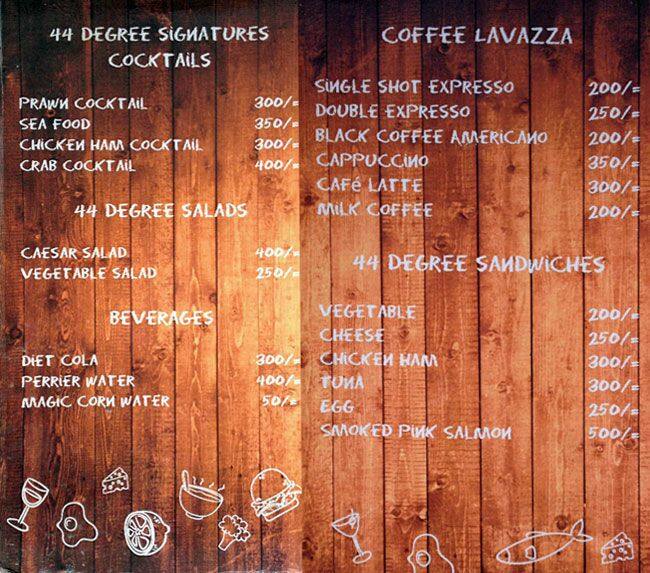 44 DEGREE SIGNATURES
COCKTAILS
PRAWN COCKTAIL 300/=
SEA FOOD 350/=
CHICKEN HAM COCKTAIL 300/=
CRAB COCKTAIL 400/=
44 DEGREE SALADS
CAESAR SALAD 400/=
VEGETABLE SALAD 250/=
BEVERAGES
DIET COLA 300/=
PERRIER WATER 400/=
MAGIC CORN WATER 50/=
COFFEE LAVAZZA
SINGLE SHOT EXPRESSO 200/=
DOUBLE EXPRESSO 250/=
BLACK COFFEE AMERICANO 200/=
CAPPUCCINO 350/=
CAFé LATTE 300/=
MILK COFFEE 200/=
44 DEGREE SANDWICHES
VEGETABLE 200/=
CHEESE 250/=
CHICKEN HAM 300/=
TUNA 300/=
EGG 250/=
SMOKED PINK SALMON 500/=